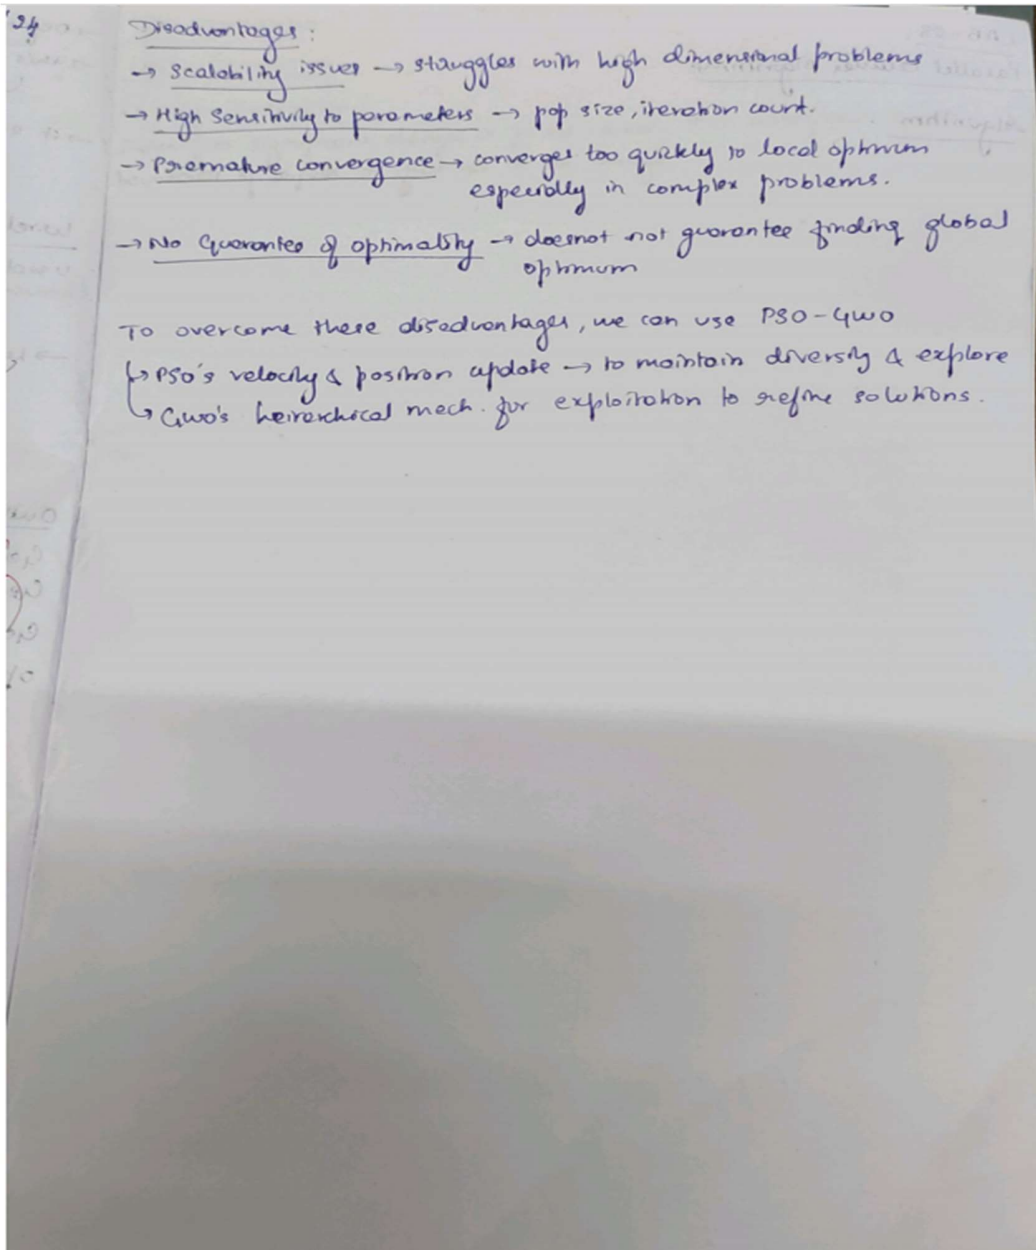 '24
Disadvantages :
→ Scalability issues → struggles with high dimensional problems
→ High Sensitivity to parameters → pop size, iteration count.
→ Premature convergence → converges too quickly to local optimum
especially in complex problems.
→ No Guarantee of optimality → doesnot not guarantee finding global
optimum
To overcome these disadvantages, we can use PSO-GWO
↳ PSO's velocity & position update → to maintain diversity & explore
↳ GWO's heirarchical mech. for exploitation to refine solutions.